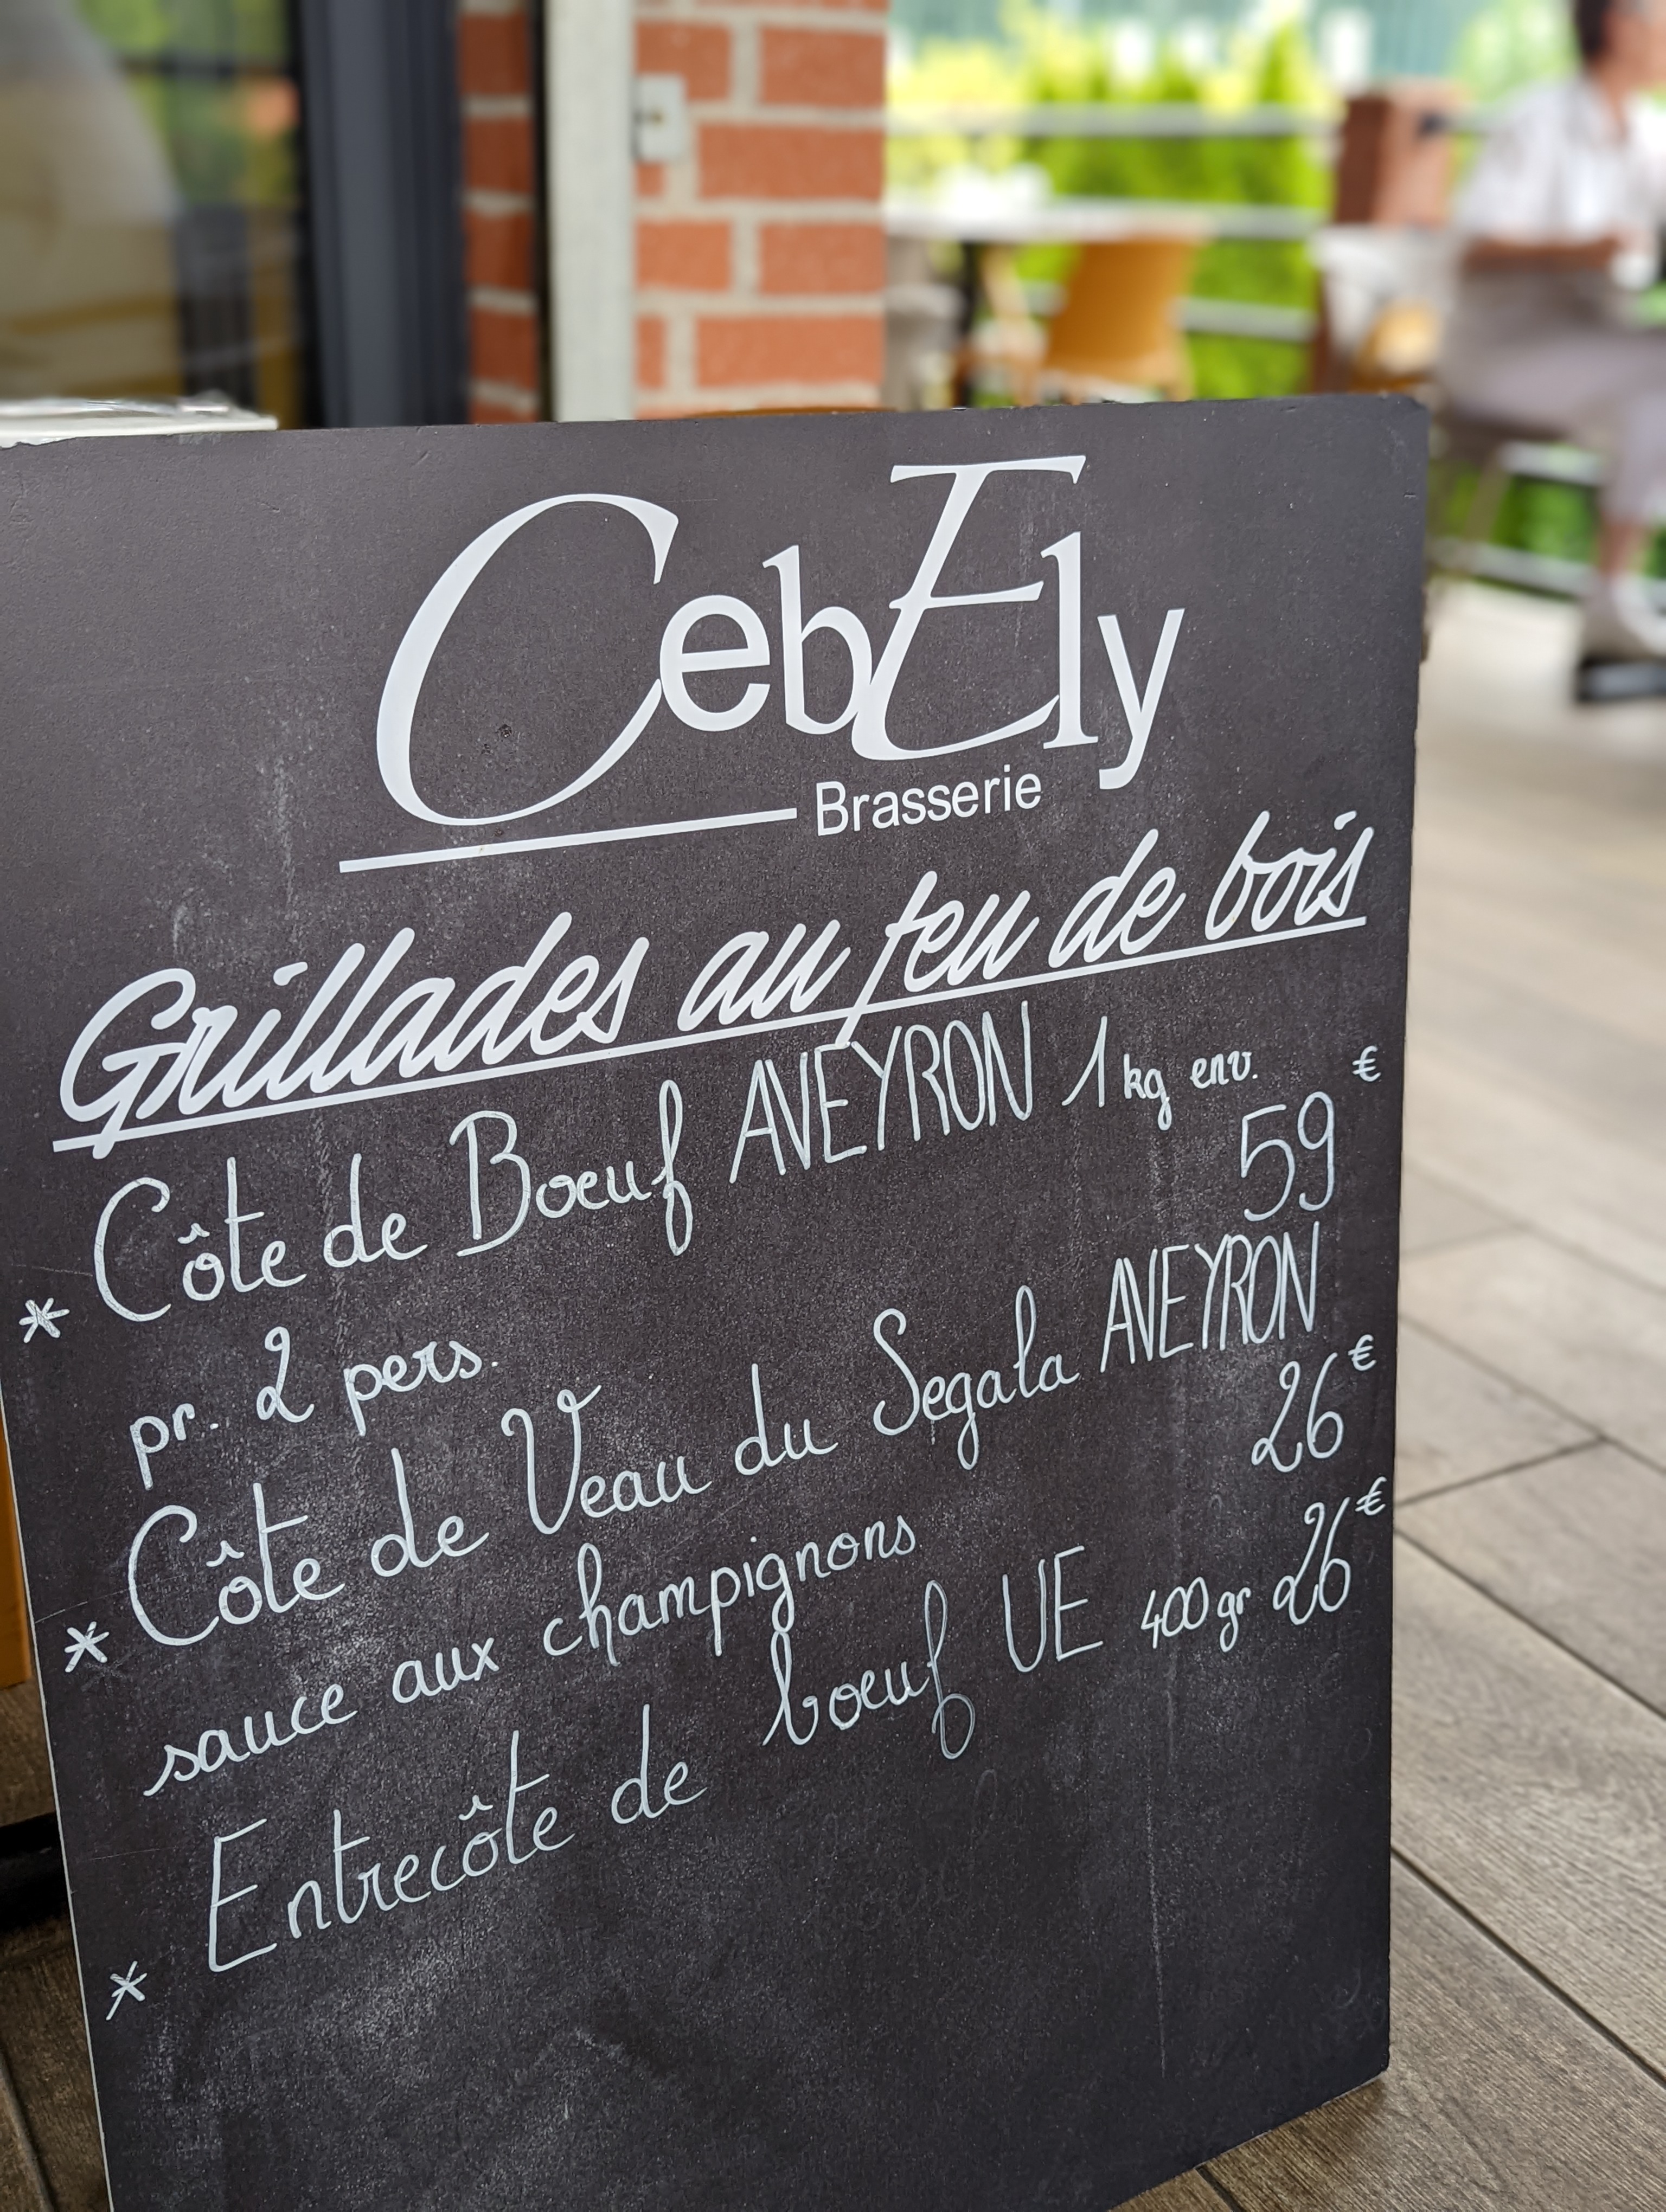 CebEly
Brasserie
Grillades au feu de bois
* Côte de Boeuf AVEYRON 1kg env.
pr. 2 pers. 59€
* Côte de Veau du Segala AVEYRON
sauce aux champignons 26€
* Entrecôte de boeuf UE 400gr 26€